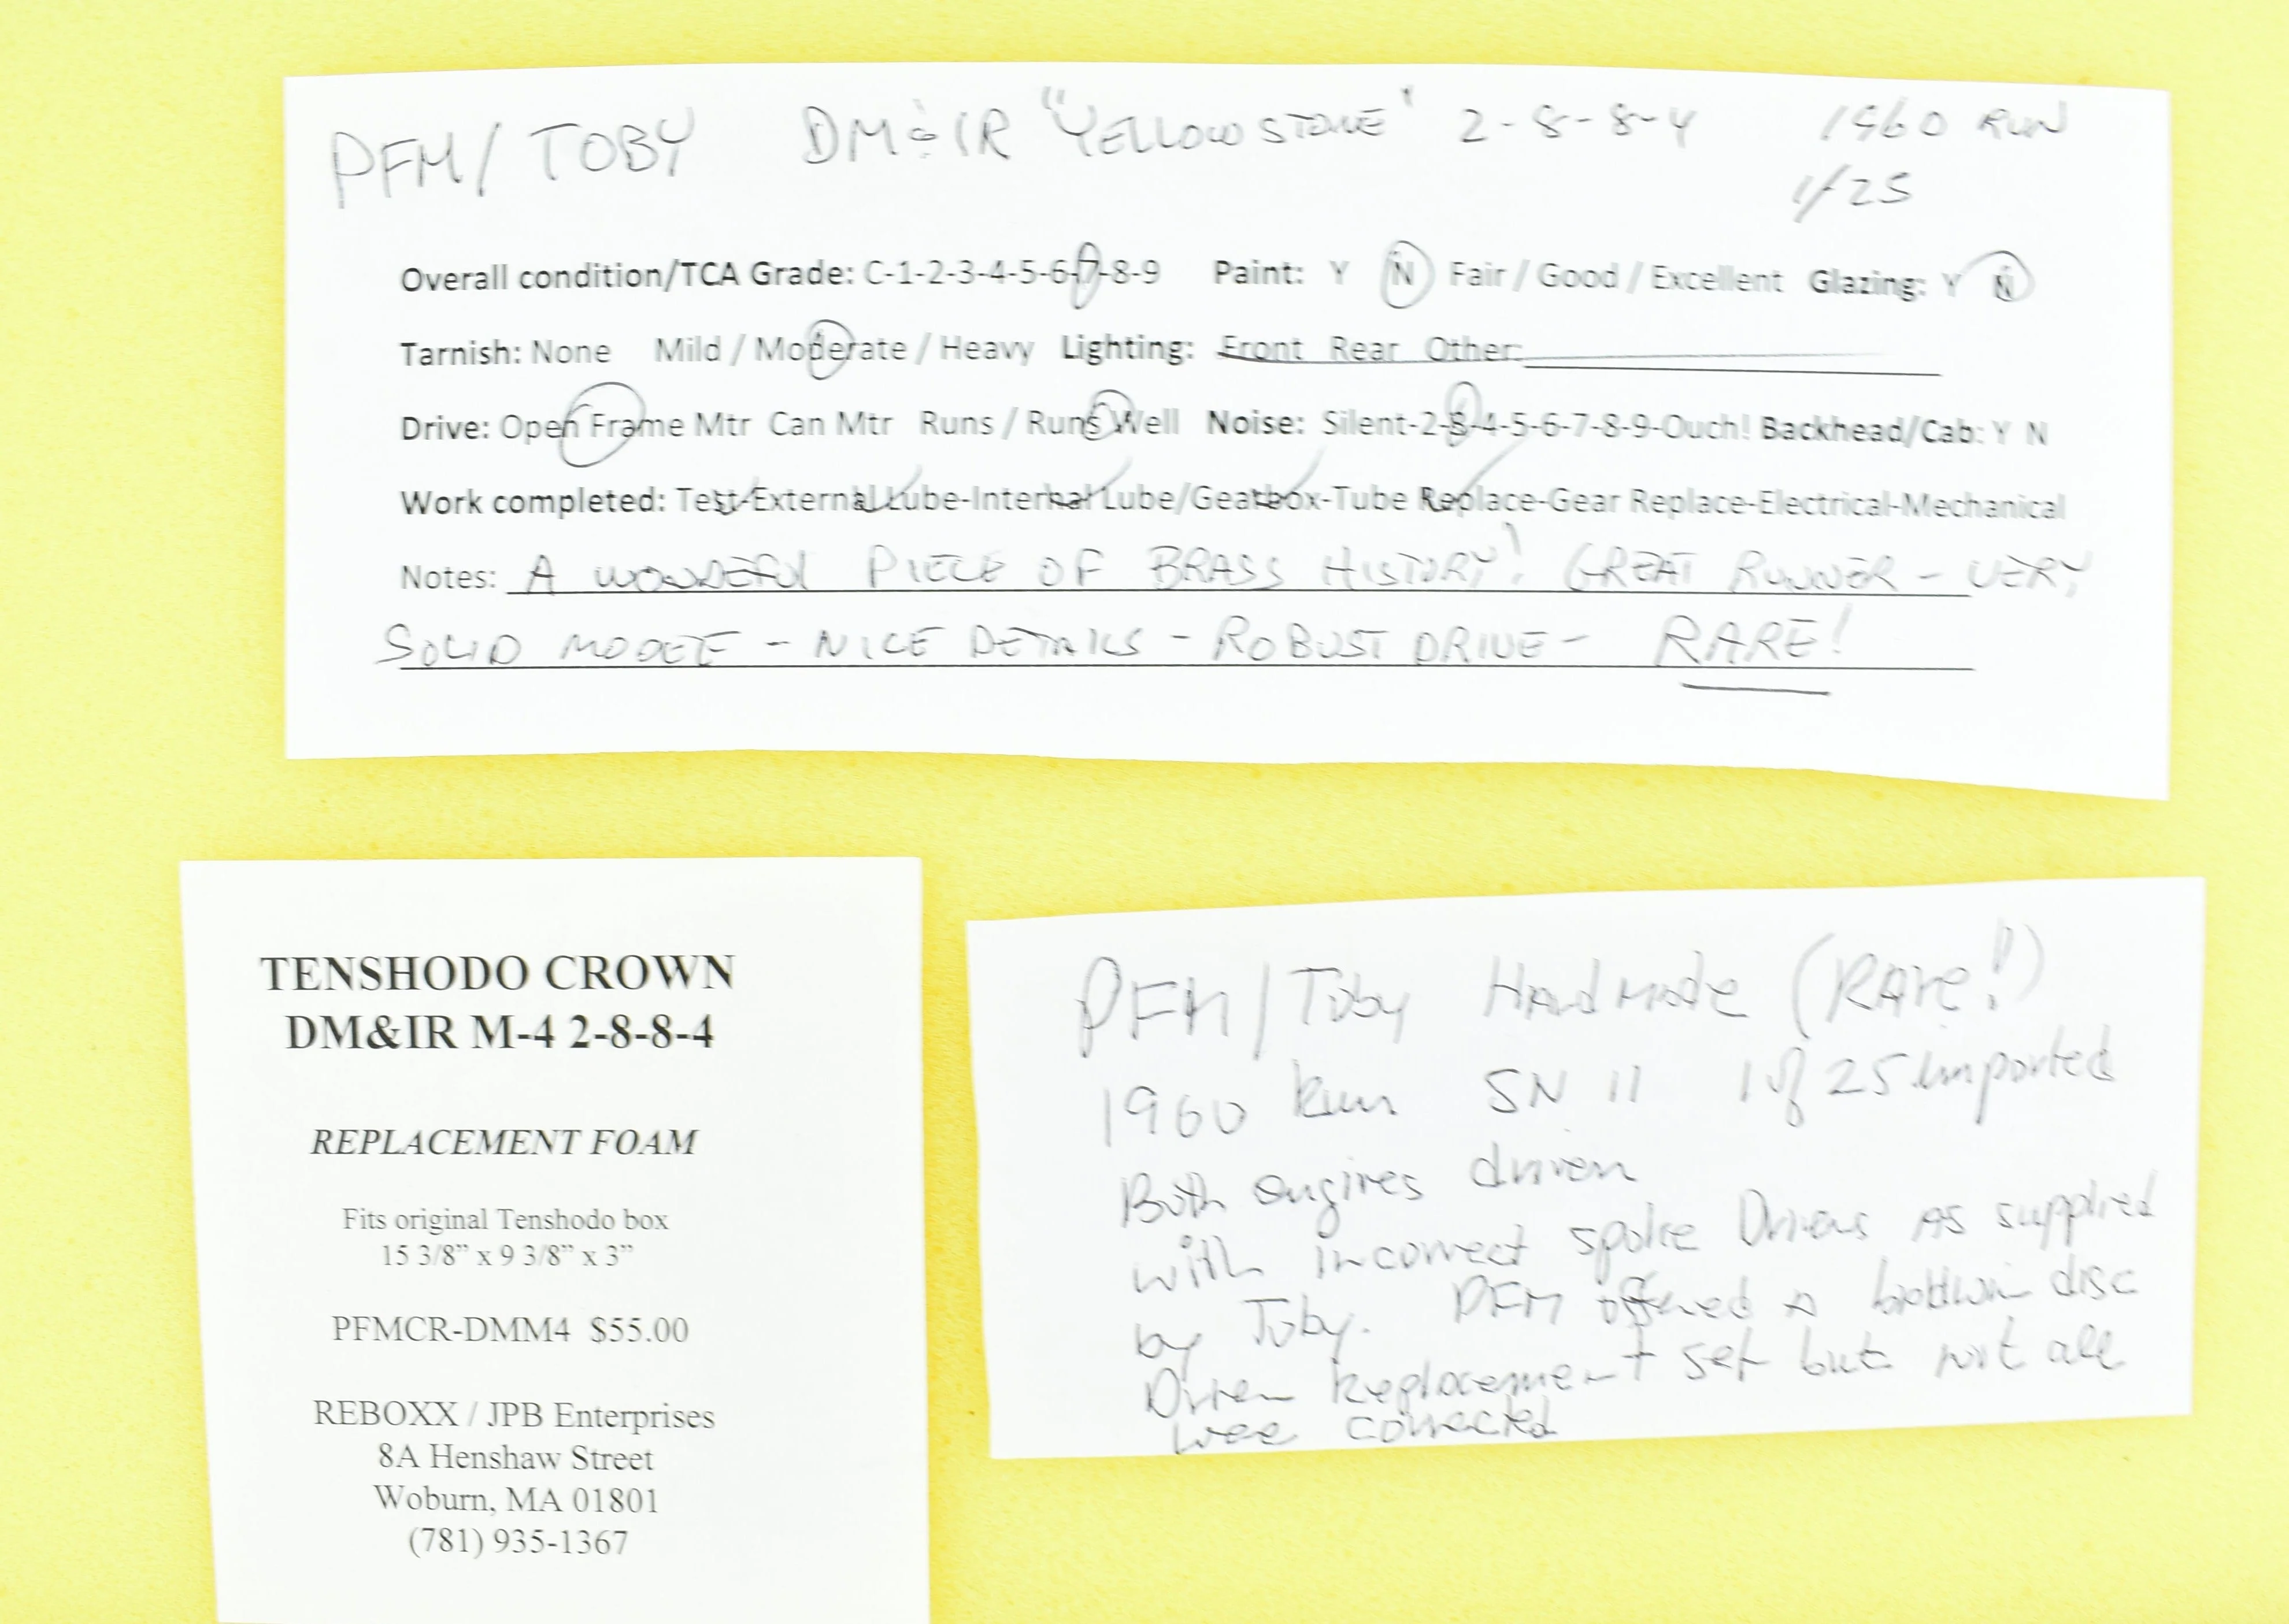 PFM/TOBY DM&IR "YELLOWSTONE" 2-8-8-4 1960 RUN
1/25
Overall condition/TCA Grade: C-1-2-3-4-5-6-7-8-9 Paint: Y N Fair / Good / Excellent Glazing: Y N
Tarnish: None Mild / Moderate / Heavy Lighting: Front Rear Other:
Drive: Open Frame Mtr Can Mtr Runs / Runs Well Noise: Silent-2-3-4-5-6-7-8-9-Ouch! Backhead/Cab: Y N
Work completed: Test-External Lube-Internal Lube/Gearbox-Tube Replace-Gear Replace-Electrical-Mechanical
Notes: A WONDEFUL PIECE OF BRASS HISTORY! GREAT RUNNER - VERY
SOLID MODEL - NICE DETAILS - ROBUST DRIVE - RARE!
TENSHODO CROWN
DM&IR M-4 2-8-8-4
REPLACEMENT FOAM
Fits original Tenshodo box
15 3/8" x 9 3/8" x 3"
PFMCR-DMM4 $55.00
REBOXX / JPB Enterprises
8A Henshaw Street
Woburn, MA 01801
(781) 935-1367
PFM/Toby Handmade (RARe!)
1960 Run SN 11 1 of 25 imported
Both engines driven
with incorrect spoke Drivers AS supplied
by Toby. PFM offered a boldwin disc
Driver Replacement set but not all
wee corrected